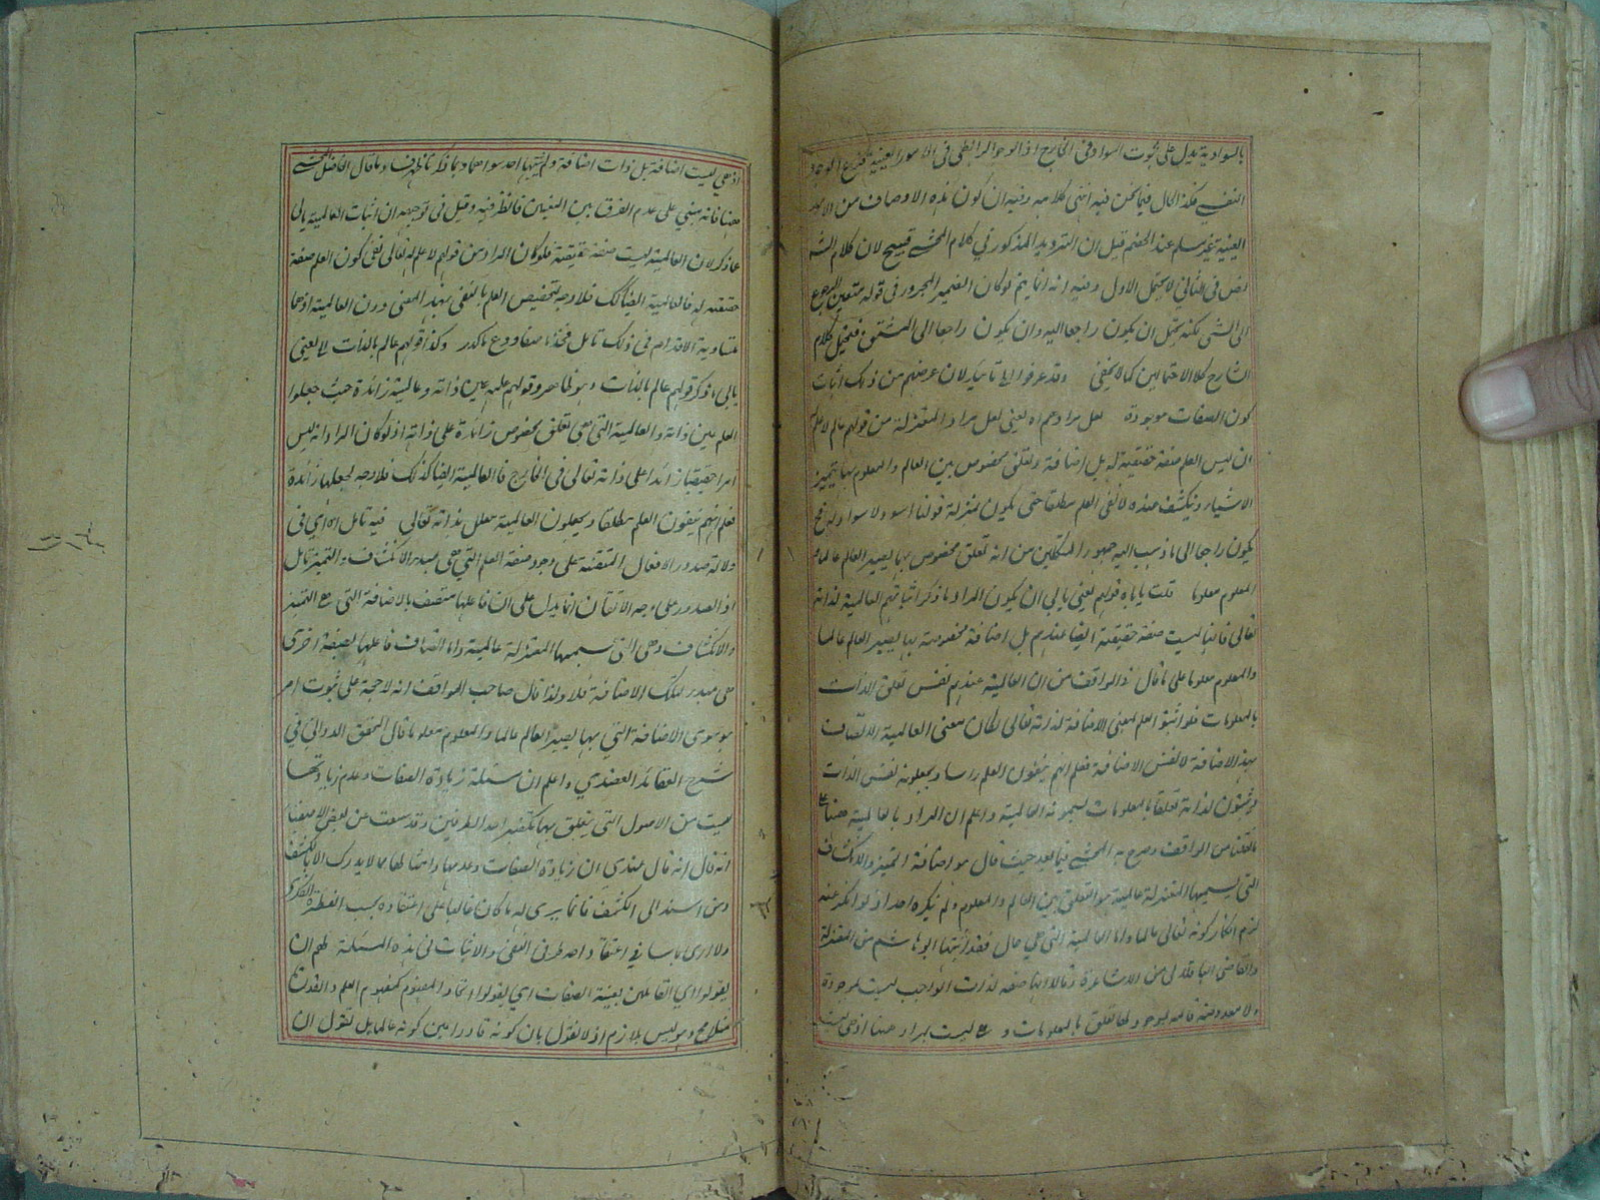 بالسوادية يدل على ثبوت السواد في الخارج اذ الوجود الرابطي في الامور العينية فرع الوجود
النفسي فكذا الحال فيما نحن فيه انتهى كلامه وفيه ان كون هذه الاوصاف من الامور
العينية غير مسلم عند الخصم قيل ان الترديد المذكور في كلام المحشي قبيح لان كلام الش
نص في الثاني لا يحتمل الاول وفيه انه انما يتم لو كان الضمير المجرور في قوله متعين الرجوع
الى الشي لكنه يحتمل ان يكون راجعا اليه وان يكون راجعا الى المشتق فيحتمل كلام
الشارح كلا الاحتمالين كما لا يخفى وقد عرفوا لان غرضهم من ذلك اثبات
كون الصفات موجودة لعل مرادهم اه يعني لعل مراد المعتزلة من قولهم عالم لا علم
ان ليس العلم صفة حقيقية له بل اضافة وتعلق مخصوص بين العالم والمعلوم بها يتميز
الاشياء وينكشف عنده لا نفي العلم مطلقا حتى يكون بمنزلة قولنا اسود لا سواد له فح
يكون راجعا الى ما ذهب اليه جمهور المتكلمين من انه تعلق مخصوص بها يصير العالم عالما
المعلوم معلوما قلت ياباه قولهم يعني يابى ان يكون المراد ما ذكر اثباتهم العالمية لذاته
تعالى فانها ليست صفة حقيقية ايضا عندهم بل اضافة مخصوصة بها يصير العالم عالما
والمعلوم معلوما على ما قال في المواقف من ان العالمية عندهم نفس تعلق الذات
بالمعلومات فلو اثبتوا العلم بمعنى الاضافة لذاته تعالى لكان معنى العالمية الاتصاف
بهذه الاضافة لا نفس الاضافة فعلم انهم ينفون العلم راسا ويجعلونه نفس الذات
ويثبتون لذاته تعلقا بالمعلومات يسمونه العالمية واعلم ان المراد بالعالمية هنا على
ما نقلنا من المواقف وصرح به المحشي فيما بعد حيث قال هو اضافة التميز والانكشاف
التي يسميها المعتزلة عالمية هو التعلق بين العالم والمعلوم ولم ينكره احد اذ لو انكر عنه
لزم انكار كونه تعالى عالما واما العالمية التي هي حال فقد اثبتها ابو هاشم من المعتزلة
والقاضي الباقلاني من الاشاعرة وقالا انها صفة لذات الواجب ليست بموجودة
ولا معدومة قائمة بموجود لها تعلق بالمعلومات وهي ليست بمراد هنا اذ هي ليست
اذ هي ليست اضافة بل ذات اضافة ولم يثبتها احد سواهما وبما ذكرنا ظهر فساد ما قال الفاضل المحشي
هنا فانه مبني على عدم الفرق بين المعنيين فانظر فيه وقيل في توجيهه ان اثبات العالمية يابى
عما ذكر لان العالمية ليست صفة حقيقية فلو كان المراد من قولهم لا علم له تعالى نفي كون العلم صفة
حقيقية له فالعالمية ايضا كك فلا وجه لتخصيص العلم بالنفي بهذا المعنى دون العالمية اذ هما
متساوية الاقدام في ذلك تامل فخذ ما صفا ودع ما كدر وكذا قولهم عالم بالذات لا يعني
يابى ما ذكر قولهم عالم بالذات وهو ظاهر وقولهم علمه عين ذاته وعالمية زائدة حيث جعلوا
العلم عين ذاته والعالمية التي هي تعلق مخصوص زائدة على ذاته اذ لو كان المراد انه ليس
امرا حقيقيا زائدا على ذاته تعالى في الخارج فالعالمية ايضا كذلك فلا وجه لجعلها زائدة
فعلم انهم ينفون العلم مطلقا ويجعلون العالمية معلل بذاته تعالى فيه تامل اه اي في
دلالة صدور الافعال المتقنة على وجود صفة العلم التي هي مبدء الانكشاف والتميز تامل
اذ الصدور على وجه الاتقان انما يدل على ان فاعلها متصف بالاضافة التي هي التميز
والانكشاف وهي التي يسميها المعتزلة عالمية واما اتصاف فاعلها بصفة اخرى
هي مبدء لتلك الاضافة فلا ولذا قال صاحب المواقف انه لا حجة على ثبوت امر
سوى الاضافة التي بها يصير العالم عالما والمعلوم معلوما قال المحقق الدواني في
شرح العقائد العضدي واعلم ان مسئلة زيادة الصفات وعدم زيادتها
ليست من الاصول التي يتعلق بها تكفير احد الطرفين وقد سمعت من بعض الاصفياء
انه قال عندي ان زيادة الصفات وعدمها وامثالها مما لا يدرك الا بالكشف
ومن اسند الى الكشف فانما يرى له ما كان غالبا على اعتقاده بحسب النظر الفكري
ولا ارى باسا في اعتقاد احد طرفي النفي والاثبات في هذه المسئلة لهم ان
يقولوا اي القائلين بعينية الصفات اي يقولوا اتحاد المفهوم كمفهوم العلم والقدرة
مثلا مح وهو ليس بلازم اذ لا نقول بان كونه قادرا عين كونه عالما بل نقول ان